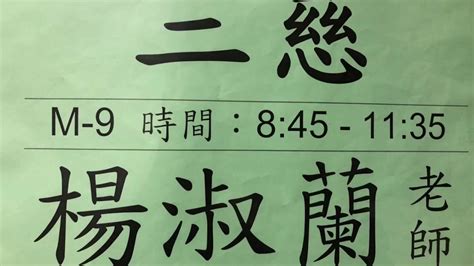 二慈
M-9 時間：8:45 - 11:35
楊淑蘭老師